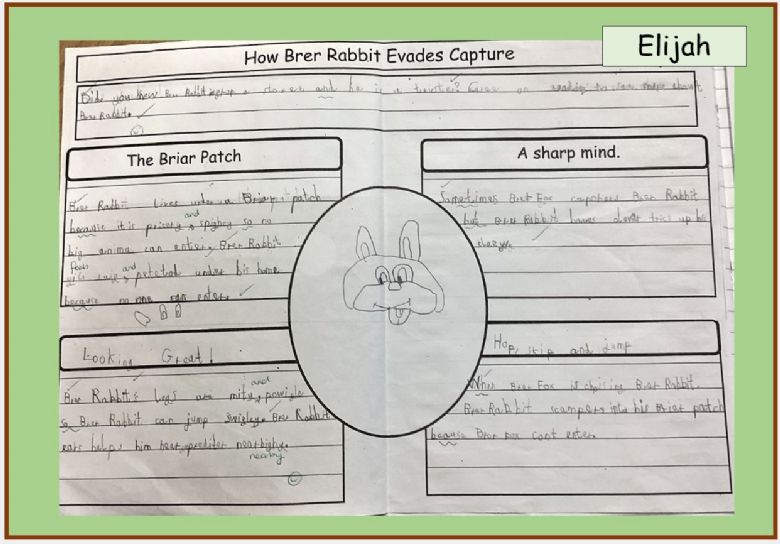 Elijah
How Brer Rabbit Evades Capture
Did you know Brer Rabbit is a and he is a on reading to see more about
Brer Rabbit.
The Briar Patch
Brer Rabbit Lives under a Briar patch
because it is pricery and spighey so no
big anima can enter. Brer Rabbit
feels safe and petetead under his home
because no one can enter.
Looking Great!
Brer Rabbit's legs are mity and powigle
so Brer Rabbit can jump swigley. Brer Rabbit
ears helps him hear predeter nearbigh.
nearby
A sharp mind.
Sometimes Brer Fox captures Brer Rabbit
but Brer Rabbit haves clever trics up his
sleegv.
Hop, skip and jump
When Brer Fox is chaising Brer Rabbit.
Brer Rabbit scampers into his Briar patch
because Brer Fox cont enter.